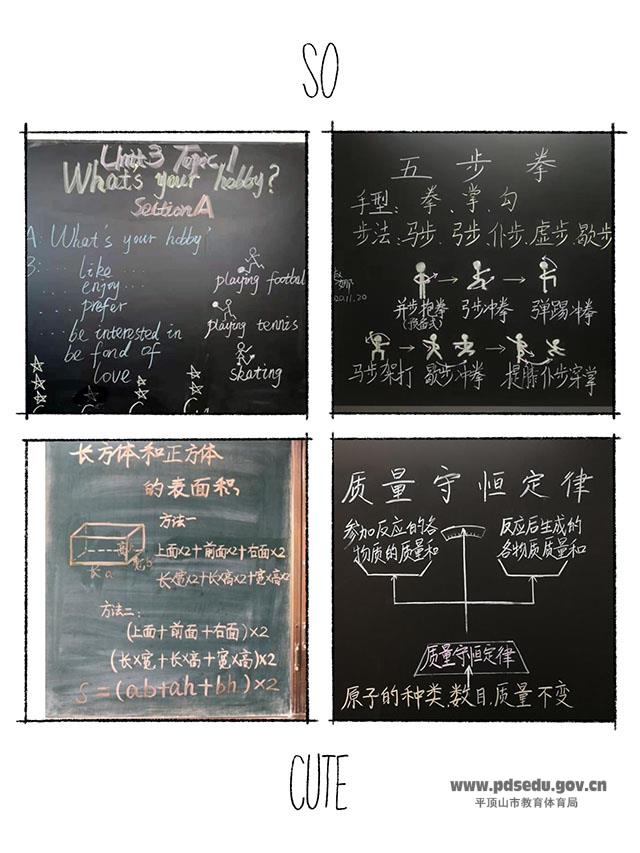 SO
Unit 3 Topic 1
What's your hobby?
Section A
A: What's your hobby?
B:
like
enjoy
prefer
be interested in
be fond of
love
playing football
playing tennis
skating
五步拳
手型: 拳、掌、勾
步法: 马步、弓步、仆步、虚步、歇步
并步抱拳 弓步冲拳 弹踢冲拳
(预备式)
马步架打 歇步冲拳 提膝仆步穿掌
长方体和正方体
的表面积
方法一
上面×2+前面×2+右面×2
长×宽×2+长×高×2+宽×高×2
长 a
方法二:
(上面+前面+右面)×2
(长×宽+长×高+宽×高)×2
S=(ab+ah+bh)×2
质量守恒定律
参加反应的各
物质的质量和
反应后生成的
各物质质量和
质量守恒定律
原子的种类、数目、质量不变
CUTE
www.pdsedu.gov.cn
平顶山市教育体育局